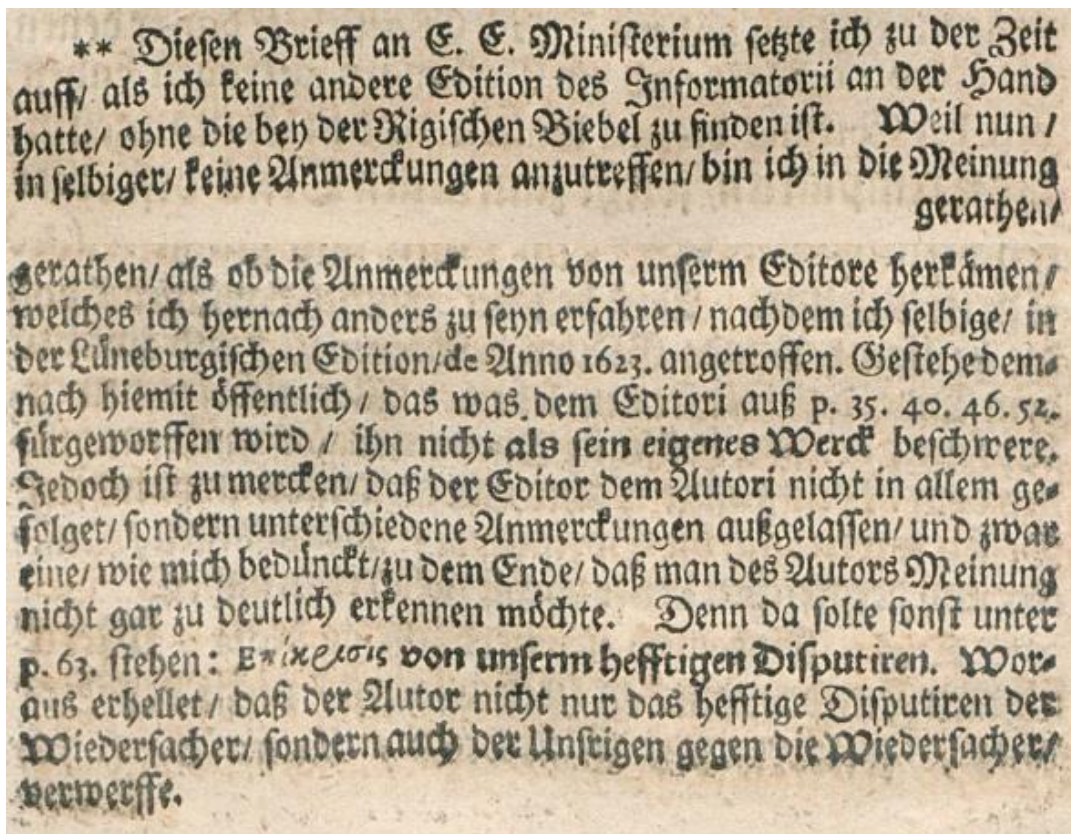 ** Diesen Brieff an E. E. Ministerium setzte ich zu der Zeit
auff/ als ich keine andere Edition des Informatorii an der Hand
hatte/ ohne die bey der Rigischen Biebel zu finden ist. Weil nun /
in selbiger/ keine Anmerckungen anzutreffen/ bin ich in die Meinung
gerathen/
gerathen/ als ob die Anmerckungen von unserm Editore herkämen/
welches ich hernach anders zu seyn erfahren / nachdem ich selbige/ in
der Lüneburgischen Edition/ de Anno 1623. angetroffen. Gestehe dem-
nach hiemit öffentlich / das was dem Editori auß p. 35. 40. 46. 52.
fürgeworffen wird / ihn nicht als sein eigenes Werck beschwere.
Jedoch ist zu mercken/ daß der Editor dem Autori nicht in allem ge-
folget/ sondern unterschiedene Anmerckungen außgelassen/ und zwar
eine/ wie mich bedünckt/ zu dem Ende/ daß man des Autors Meinung
nicht gar zu deutlich erkennen möchte. Denn da solte sonst unter
p. 63. stehen: Επίκρισις von unserm hefftigen Disputiren. Wor-
aus erhellet / daß der Autor nicht nur das hefftige Disputiren der
Wiedersacher/ sondern auch der Unsrigen gegen die Wiedersacher/
verwerffe.